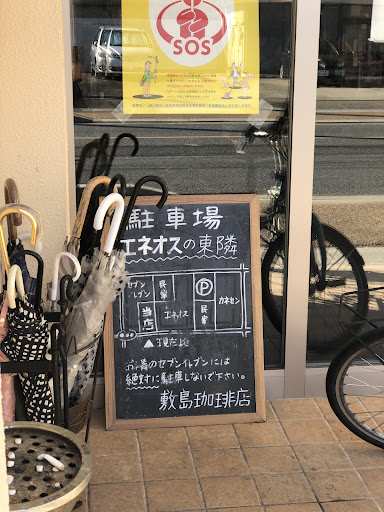 SOS
駐車場
エネオスの東隣
セブン
イレブン
民家
当店
エネオス
P
民家
カネセン
▲現在地
お隣のセブンイレブンには
絶対に駐車しないで下さい。
敷島珈琲店